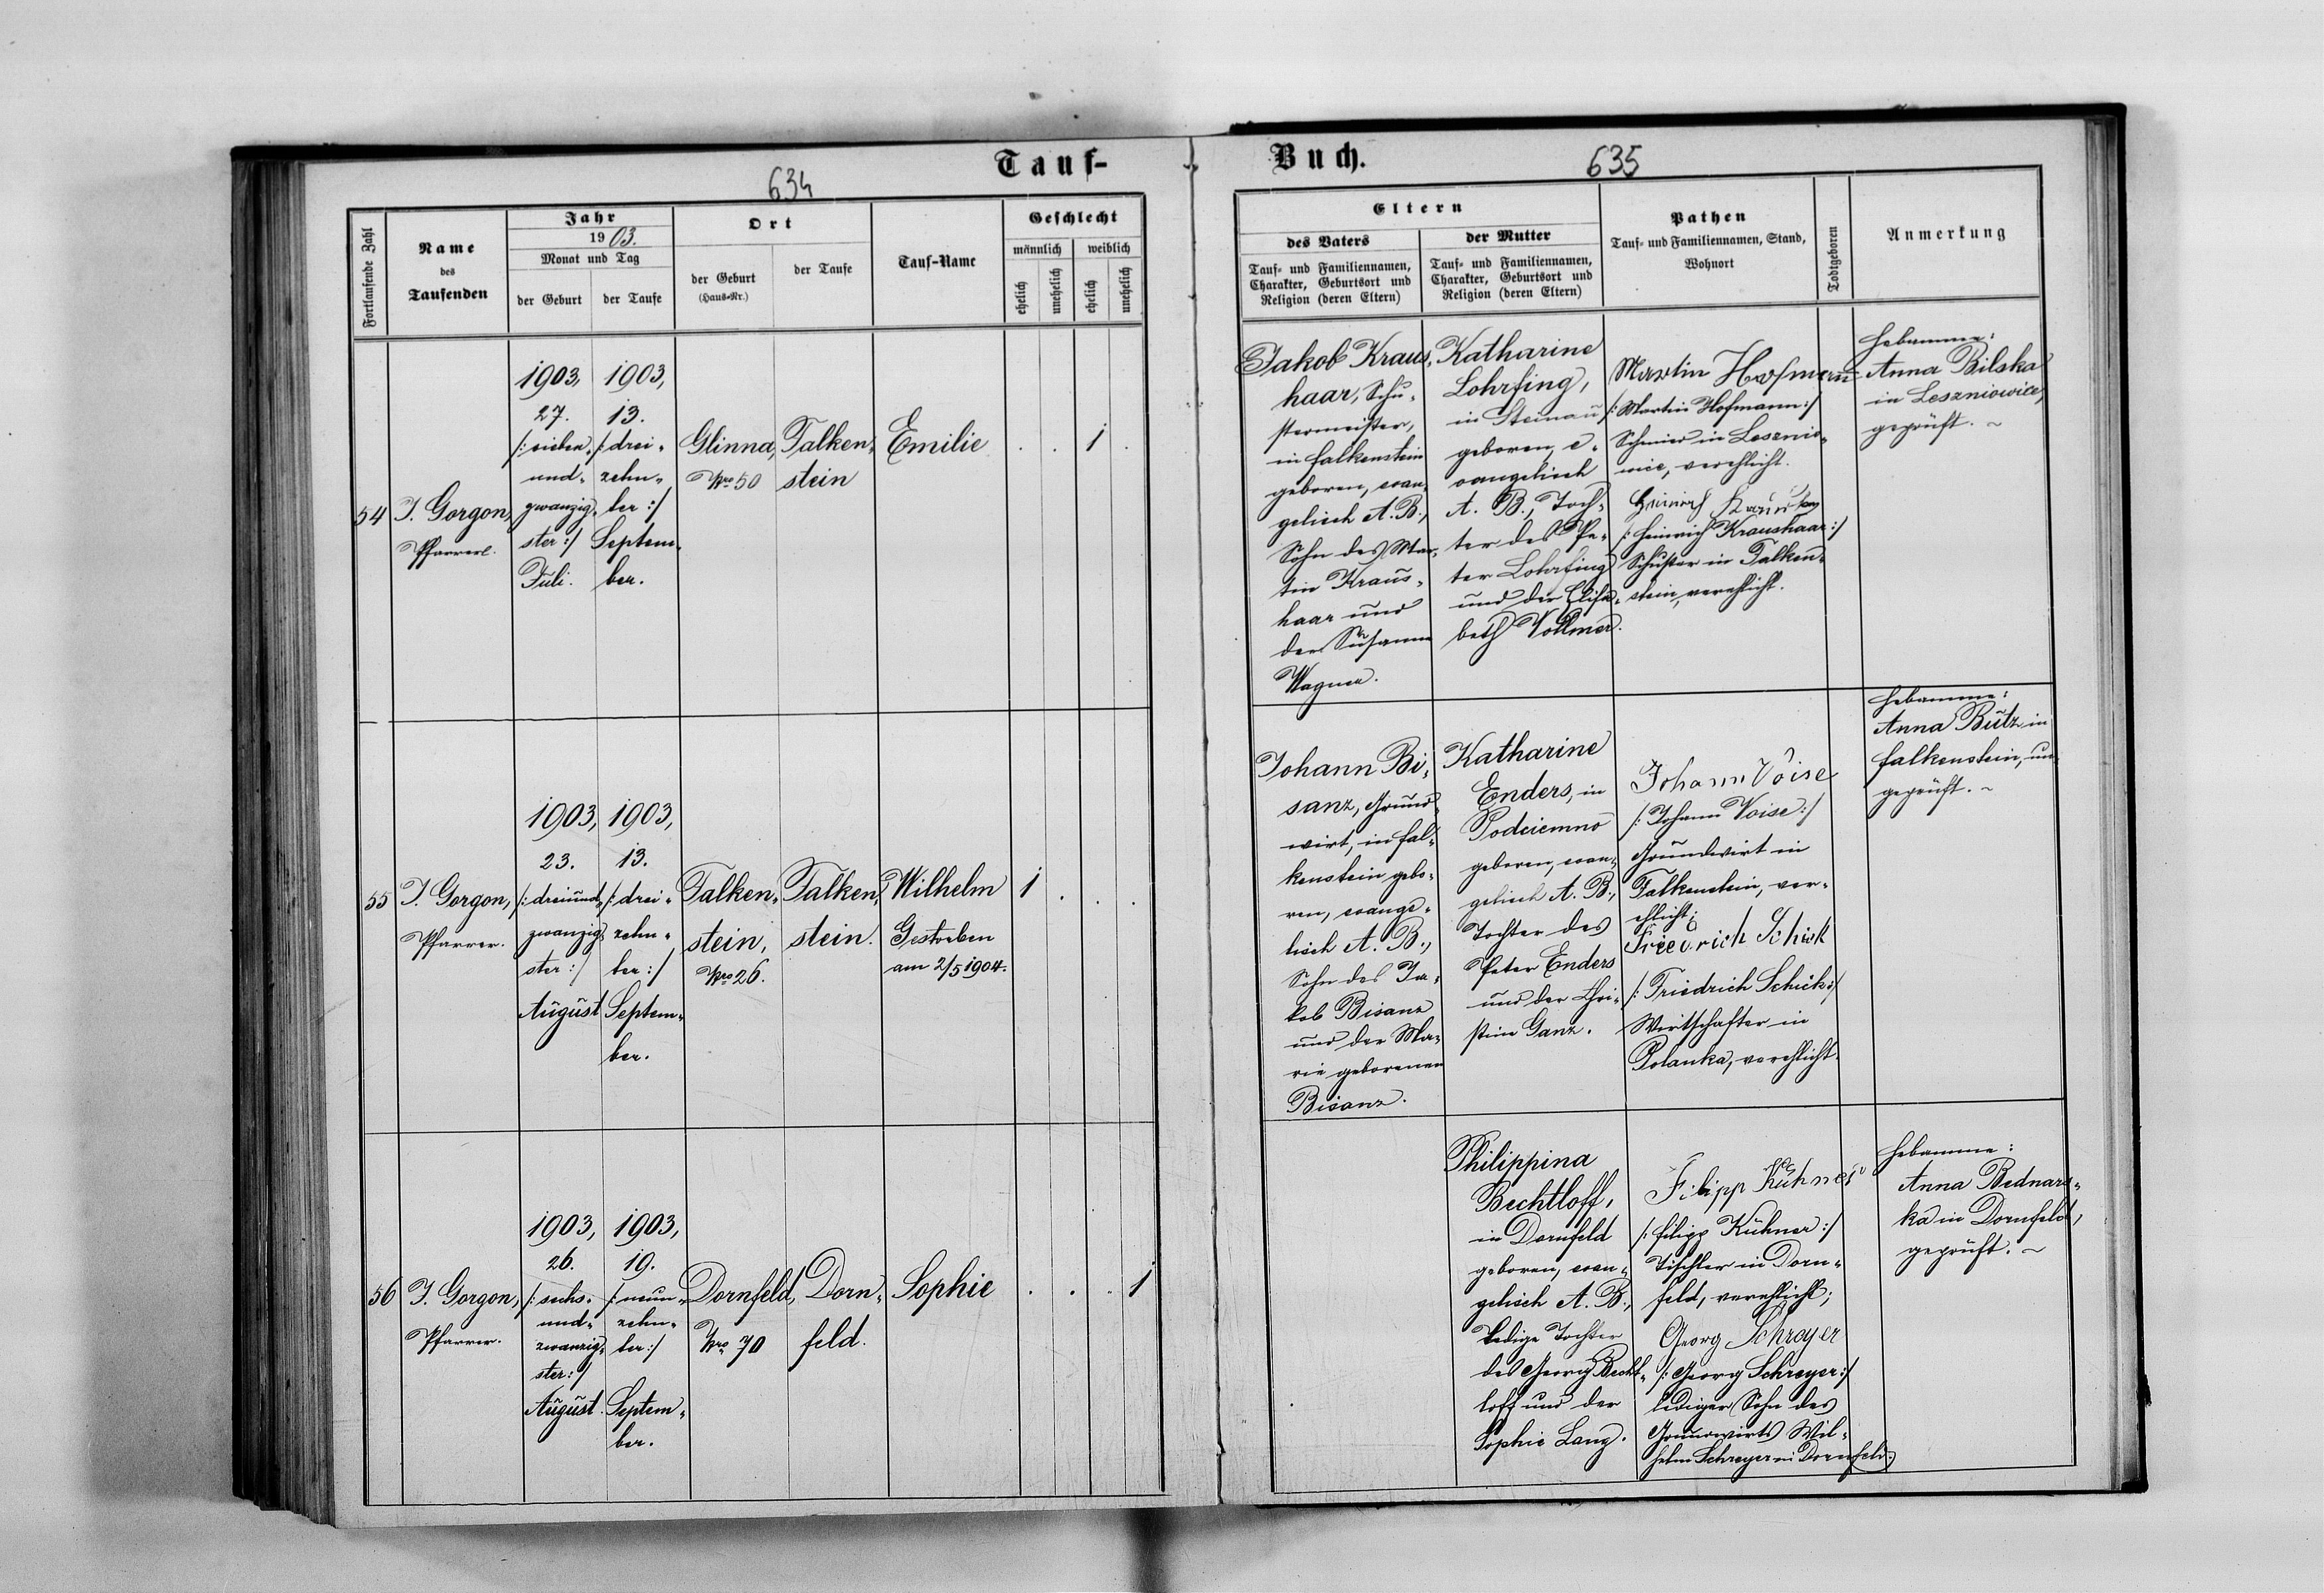 Tauf-
634
Fortlaufende Zahl
Name
des
Taufenden
Jahr
1903.
Monat und Tag
der Geburt
der Taufe
Ort
der Geburt
(Haus-Nr.)
der Taufe
Tauf-Name
Geschlecht
männlich
weiblich
ehelich
unehelich
ehelich
unehelich
54
J. Gorgon,
Pfarrer.
1903,
27.
/: sieben-
und-
zwanzig-
ster :/
Juli.
1903,
13.
/: drei-
zehn-
ter :/
Septem-
ber.
Glinna,
Nro 50
Falken-
stein
Emilie
. . 1 .
55
J. Gorgon,
Pfarrer.
1903,
23.
/: dreiund-
zwanzig-
ster :/
August
1903,
13.
/: drei-
zehn-
ter :/
Septem-
ber.
Falken-
stein,
Nro 26.
Falken-
stein.
Wilhelm
Gestorben
am 2/5 1904.
1 . . .
56
J. Gorgon,
Pfarrer.
1903,
26.
/: sechs-
und-
zwanzig-
ster :/
August.
1903,
19.
/: neun-
zehn-
ter :/
Septem-
ber.
Dornfeld,
Nro 70
Dorn-
feld.
Sophie
. . . 1
Buch.
635
Eltern
des Vaters
Tauf- und Familiennamen,
Charakter, Geburtsort und
Religion (deren Eltern)
der Mutter
Tauf- und Familiennamen,
Charakter, Geburtsort und
Religion (deren Eltern)
Pathen
Tauf- und Familiennamen, Stand,
Wohnort
Todtgeboren
Anmerkung
Jakob Kraus-
haar, Schu-
stermeister,
in Falkenstein
geboren, evan-
gelisch A. B.,
Sohn des Mar-
tin Kraus-
haar und
der Susanna
Wagner.
Katharine
Lohrfing,
in Steinau
geboren, e-
vangelisch
A. B., Toch-
ter des Pe-
ter Lohrfing
und der Elisa-
beth Vollmer.
Martin Hofmann
/: Martin Hofmann :/
Schmied in Leśnio-
wice, verehlicht.
Heinrich Kraushaar
/: Heinrich Kraushaar :/
Schuster in Falken-
stein, verehlicht.
Hebamme:
Anna Bilska
in Leszniowice,
geprüft. ~
Johann Bi-
sanz, Grund-
wirt, in Fal-
kenstein gebo-
ren, evange-
lisch A. B.,
Sohn des Ja-
kob Bisanz
und der Ma-
rie geborenen
Bisanz.
Katharine
Enders, in
Podciemno
geboren, evan-
gelisch A. B.,
Tochter des
Peter Enders
und der Chri-
stine Ganz.
Johann Voise
/: Johann Voise :/
Grundwirt in
Falkenstein, ver-
ehlicht;
Friedrich Schick
/: Friedrich Schick :/
Wirtschafter in
Polanka, verehlicht.
Hebamme:
Anna Butz in
Falkenstein, un-
geprüft. ~
Philippina
Bechtloff,
in Dornfeld
geboren, evan-
gelisch A. B.,
ledige Tochter
des Georg Becht-
loff und der
Sophie Lang.
Filipp Kühner
/: Filipp Kühner :/
Tischler in Dorn-
feld, verehlicht;
Georg Schreyer
/: Georg Schreyer :/
lediger Sohn des
Grundwirts Wil-
helm Schreyer in Dornfeld.
Hebamme:
Anna Bednars-
ka in Dornfeld,
geprüft. ~